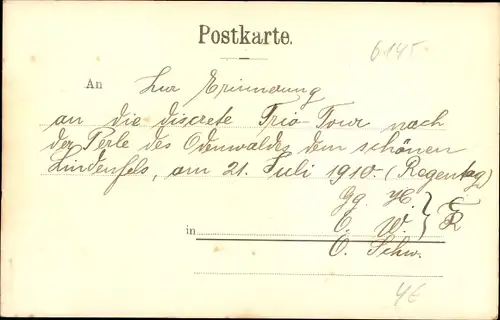 Postkarte.
6145
An Zur Erinnerung
an die discrete Trio-Tour nach
der Perle des Odenwaldes dem schönen
Lindenfels, am 21. Juli 1910. (Regentag)
Gg. H.
O. W.
in O. Schw.
4€